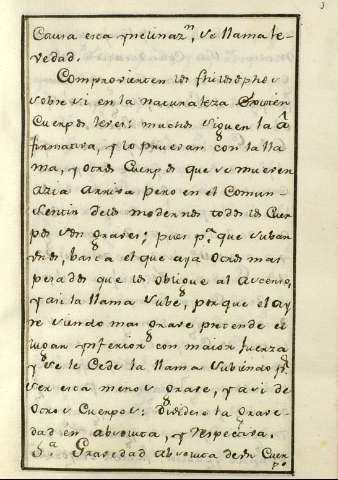 Causa esta ynclinaz.n, se llama le-
vedad.
Comprovierten los philosophos
sobre si en la naturaleza
Cuerpos leves: muchos siguen la a
firmativa, y lo pruevan con la lla
ma, y otros Cuerpos que se mueven
azia arriva pero en el Comun
sentir delos modernos todos los Cuer
pos son graves; pues p.a que suban
estos, basta el que aya otros mas
pesados que los oblique al ascenso,
y asi la llama sube, porque el ay
re siendo mas grave pretende el
lugar ynferior con maior fuerza
y se le Cede la llama subiendo p.r
ser esta menos grave, y asi de
otros Cuerpos: dividese la grave-
dad en absoluta, y respectiva.
Gravedad absoluta de un Cuer
po